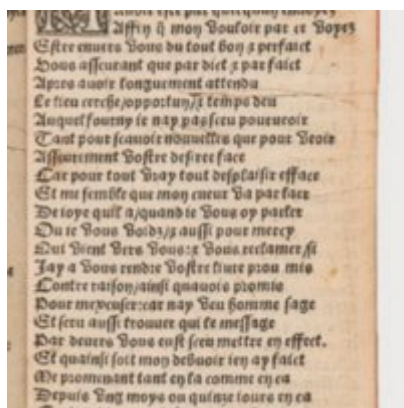 Affin q̃ mon vouloir par ce voyez
Estre enuers vous du tout bon ⁊ perfaict
Vous asseurant que par dict ⁊ par faict
Apres auoir longuement attendu
Le lieu cerche/opportun/⁊ temps deu
Auquel fourny ie nay pas sceu pourueoir
Tant pour scauoir nouuelles que pour veoir
Asseurement vostre desiree face
Car pour tout vray tout desplaisir efface
Et me semble que mon cueur va par lair
De ioye quil a/quand ie vous oy parler
Ou ie vous voids/⁊ aussi pour mercy
Qui vient vers vous:⁊ vous reclamer/si
Jay a vous rendre vostre liure prou mis
Contre raison/ainsi quauois promis
Pour mexcuser:car nay veu homme sage
Et sceu aussi trouuer qui le message
Par deuers vous eust sceu mettre en effect.
Et quainsi soit mon debuoir ien ay faict
Me promenant tant en la comme en ca
Depuis vng moys ou quinze iours en ca